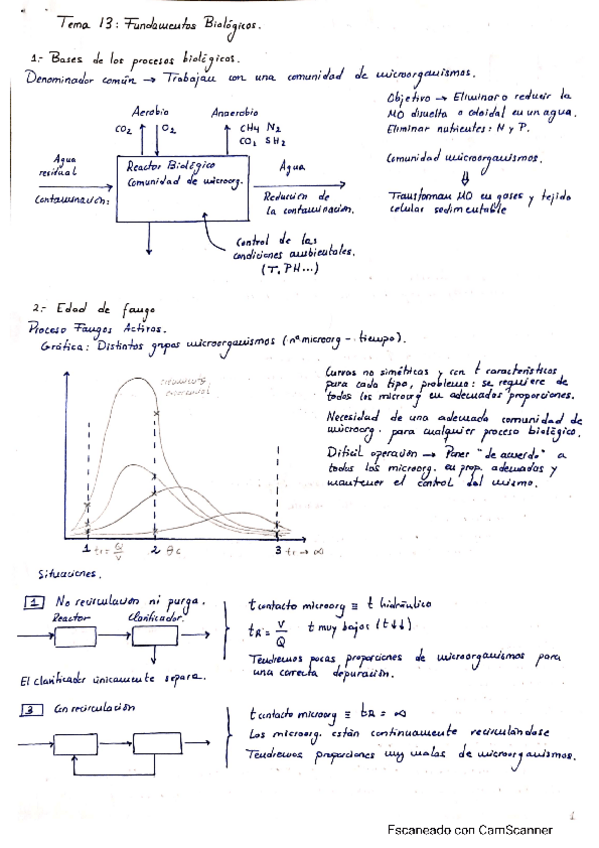 Tema 13: Fundamentos Biológicos.
1.- Bases de los procesos biológicos.
Denominador común → Trabajan con una comunidad de microorganismos.
Objetivo → Eliminar o reducir la
MO disuelta o coloidal en un agua.
Eliminar nutrientes: N y P.
Comunidad microorganismos.
⇓
Transforman MO en gases y tejido
celular sedimentable
Aerobio
CO2 O2
Anaerobio
CH4 N2
CO2 SH2
Agua
residual
Contaminación:
Reactor Biológico
Comunidad de microorg.
Agua
Reducción de
la contaminación.
Control de las
condiciones ambientales.
(T, PH...)
2.- Edad de fango
Proceso Fangos Activos.
Gráfica: Distintos grupos microorganismos (nº microorg - tiempo).
Curvas no simétricas y con t característicos
para cada tipo, problema: se requiere de
todos los microorg en adecuadas proporciones.
Necesidad de una adecuada comunidad de
microorg. para cualquier proceso biológico.
Dificil operación → Poner "de acuerdo" a
todos los microorg. en prop. adecuadas y
mantener el control del mismo.
exponencial
1
2 θc
3 tr → ∞
Situaciones.
1 No recirculación ni purga.
Reactor Clarificador.
El clarificador únicamente separa.
t contacto microorg ≡ t hidráulico
tR = V/Q t muy bajos (t↓↓)
Tendremos pocas proporciones de microorganismos para
una correcta depuración.
3 Con recirculación
t contacto microorg ≡ tR = ∞
Los microorg. están continuamente recirculándose
Tendremos proporciones muy malas de microorganismos.
1
Escaneado con CamScanner